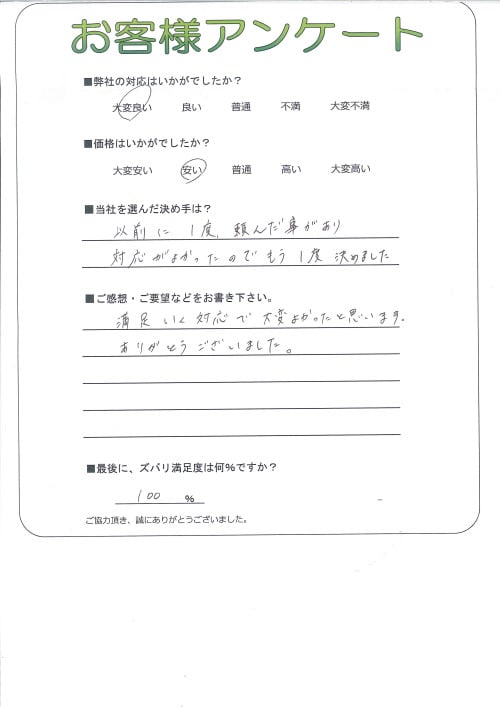 お客様アンケート
■弊社の対応はいかがでしたか?
大変良い 良い 普通 不満 大変不満
■価格はいかがでしたか?
大変安い 安い 普通 高い 大変高い
■当社を選んだ決め手は?
以前に1度、頼んだ事があり
対応がよかったのでもう1度決めました
■ご感想・ご要望などをお書き下さい。
満足いく対応で大変よかったと思います。
ありがとうございました。
■最後に、ズバリ満足度は何%ですか?
100 %
ご協力頂き、誠にありがとうございました。